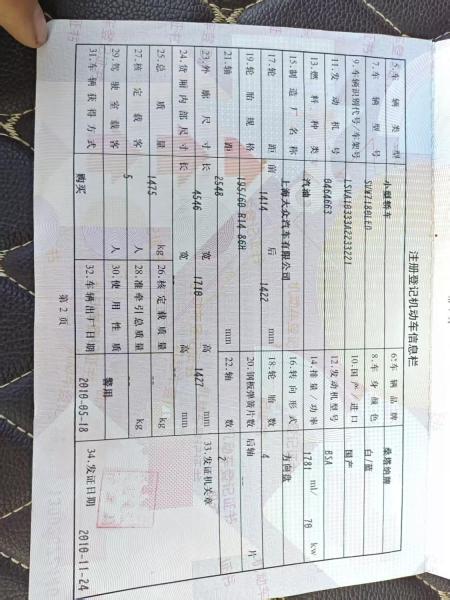 注册登记机动车信息栏
5.车辆类型 小型轿车 6.车辆品牌 桑塔纳牌
7.车辆型号 SVW7180LED 8.车身颜色 白/蓝
9.车辆识别代号/车架号 LSVA10333A2233221 10.国产/进口 国产
11.发动机号 0464663 12.发动机型号 BSA
13.燃料种类 汽油 14.排量/功率 1781 ml/ 70 kw
15.制造厂名称 上海大众汽车有限公司 16.转向形式 方向盘
17.轮距 前 1414 后 1422 mm 18.轮胎数 4
19.轮胎规格 195/60 R14 86H 20.钢板弹簧片数 后轴 片
21.轴距 2548 mm 22.轴数 2
23.外廓尺寸 长 4546 宽 1710 高 1427 mm 33.发证机关章
24.货厢内部尺寸 长 宽 高 mm
25.总质量 1475 kg 26.核定载质量 kg
27.核定载客 5 人 28.准牵引总质量 kg
29.驾驶室载客 人 30.使用性质 警用
31.车辆获得方式 购买 32.车辆出厂日期 2010-05-18 34.发证日期 2010-11-24
第2页